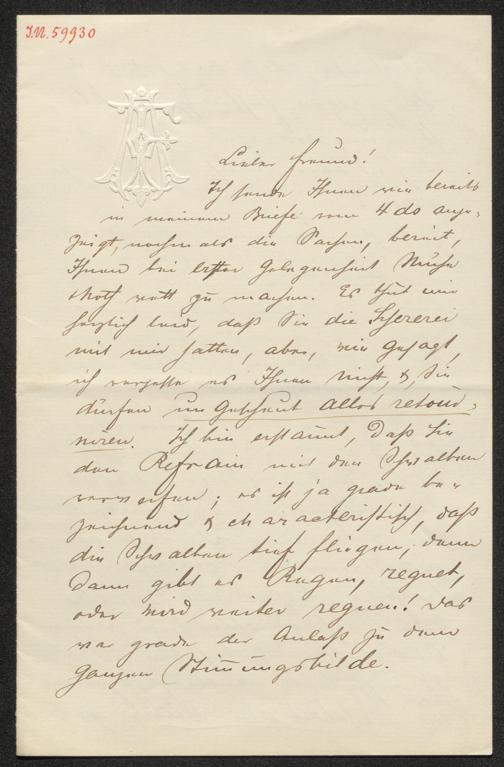 I.N. 59930
Lieber Freund!
Ich sende Ihnen wie bereits
in meinem Briefe vom 4 do ange-
zeigt, nochmals die Sachen, bereit,
Ihnen bei erster Gelegenheit
wett zu machen. Es thut mir
herzlich leid, daß Sie die Schererei
mit mir hatten, aber, wie gesagt,
ich vergesse es Ihnen nicht, &, Sie
dürfen ungescheut alles retour-
niren. Ich bin erstaunt, daß Sie
den Refrain mit den Schwalben
verwerfen; es ist ja grade be-
zeichnend & characteristisch, daß
die Schwalben tief fliegen, denn
dann gibt es Regen, regnet,
oder wird weiter regnen! Das
war grade der Anlaß zu dem
ganzen Stimmungsbilde.